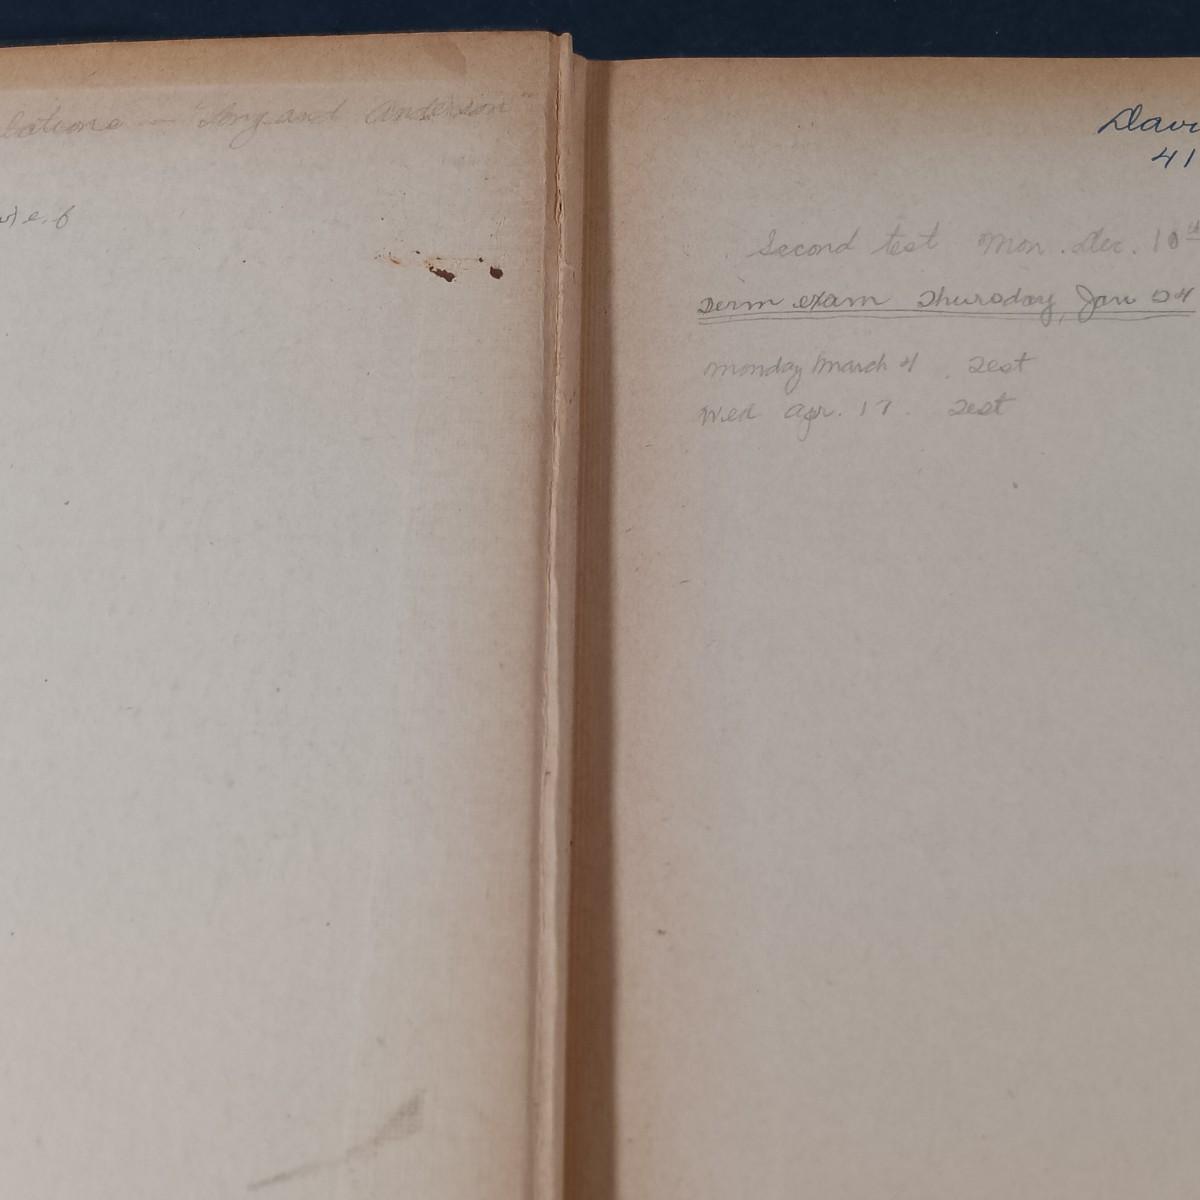 lations — "Long and Anderson"
Davi
41
Second test Mon. Dec. 10th
Term exam Thursday, Jan 24
Monday March 4. Test
Wed Apr. 17. Test